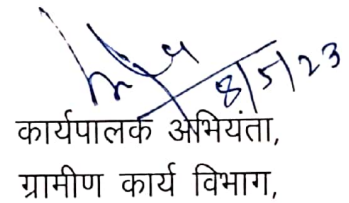 8/5/23
कार्यपालक अभियंता,
ग्रामीण कार्य विभाग,